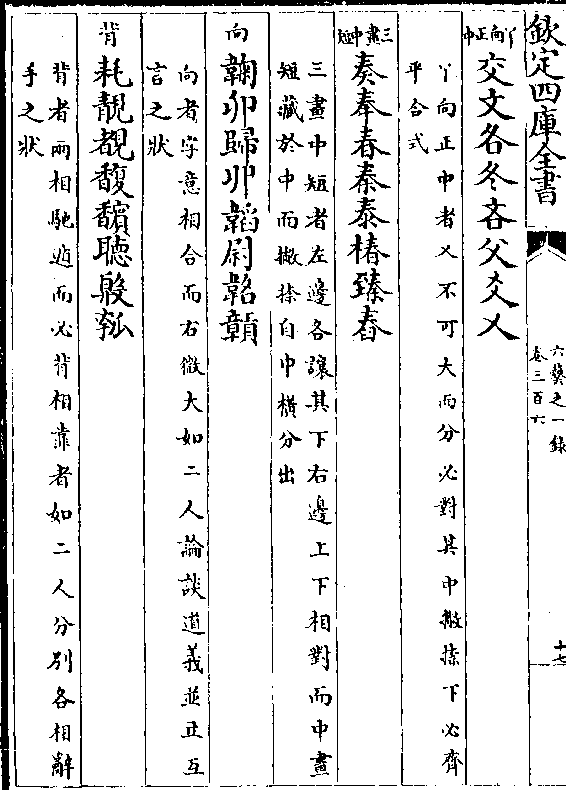 欽定四庫全書
六藝之一錄
卷三百六
十七
丫向正中
交文各冬吝父爻乂
丫向正中者乂不可大而分必對其中撇捺下必齊
平合式
三畫中短
奏奉春秦泰樁臻舂
三畫中短者左邊各讓其下右邊上下相對而中畫
短藏於中而撇捺自中橫分出
向
鞠卯歸卯韜尉
向者字意相合而右微大如二人論談道義並丑互
言之狀
背
耗靚覩馥馪聽殷瓠
背者兩相馳逈而必背相靠者如二人分別各相辭
手之狀